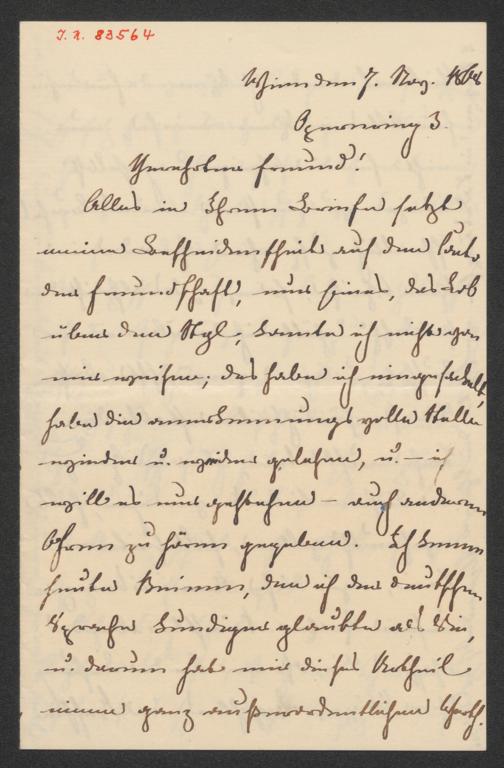 I. N. 83564
Wien den 7. Nov. 1868
Opernring 3.
Verehrter Freund!
Alles in Ihrem Briefe setzt
meine Bescheidenheit auf das Conto
der Freundschaft, nur Eines, das Lob
über den Styl, konnte ich nicht von
mir weisen; das habe ich eingesackelt,
habe die anerkennungsvolle Stelle
wieder u. wieder gelesen, u. — ich
will es nur gestehen — auch anderen
Ohren zu hören gegeben. Ich kenne
heute Keinen, den ich der deutschen
Sprache kundiger glaubte als Sie,
u. darum hat mir dieses Urtheil
einen ganz außerordentlichen Werth.